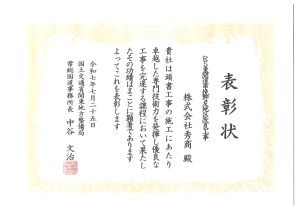 表彰状
株式会社秀商 殿
貴社は頭書工事の施工にあたり
卓越した専門技術力を発揮し優良な
工事を完遂する課程において果たし
たその功績はまことに顕著であります
よってこれを表彰します
令和七年七月二十五日
国土交通省関東地方整備局
常総国道事務所長 中谷 文治